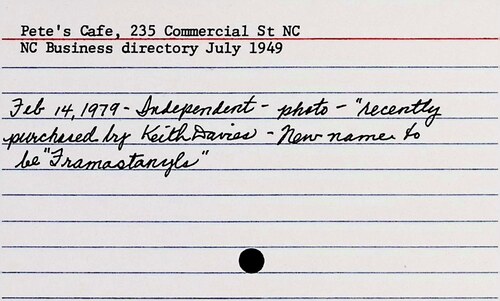 Pete's Cafe, 235 Commercial St NC
NC Business directory July 1949
Feb 14, 1979 - Independent - photo - "recently
purchased by Keith Davies - New name to
be "Framastanyls"